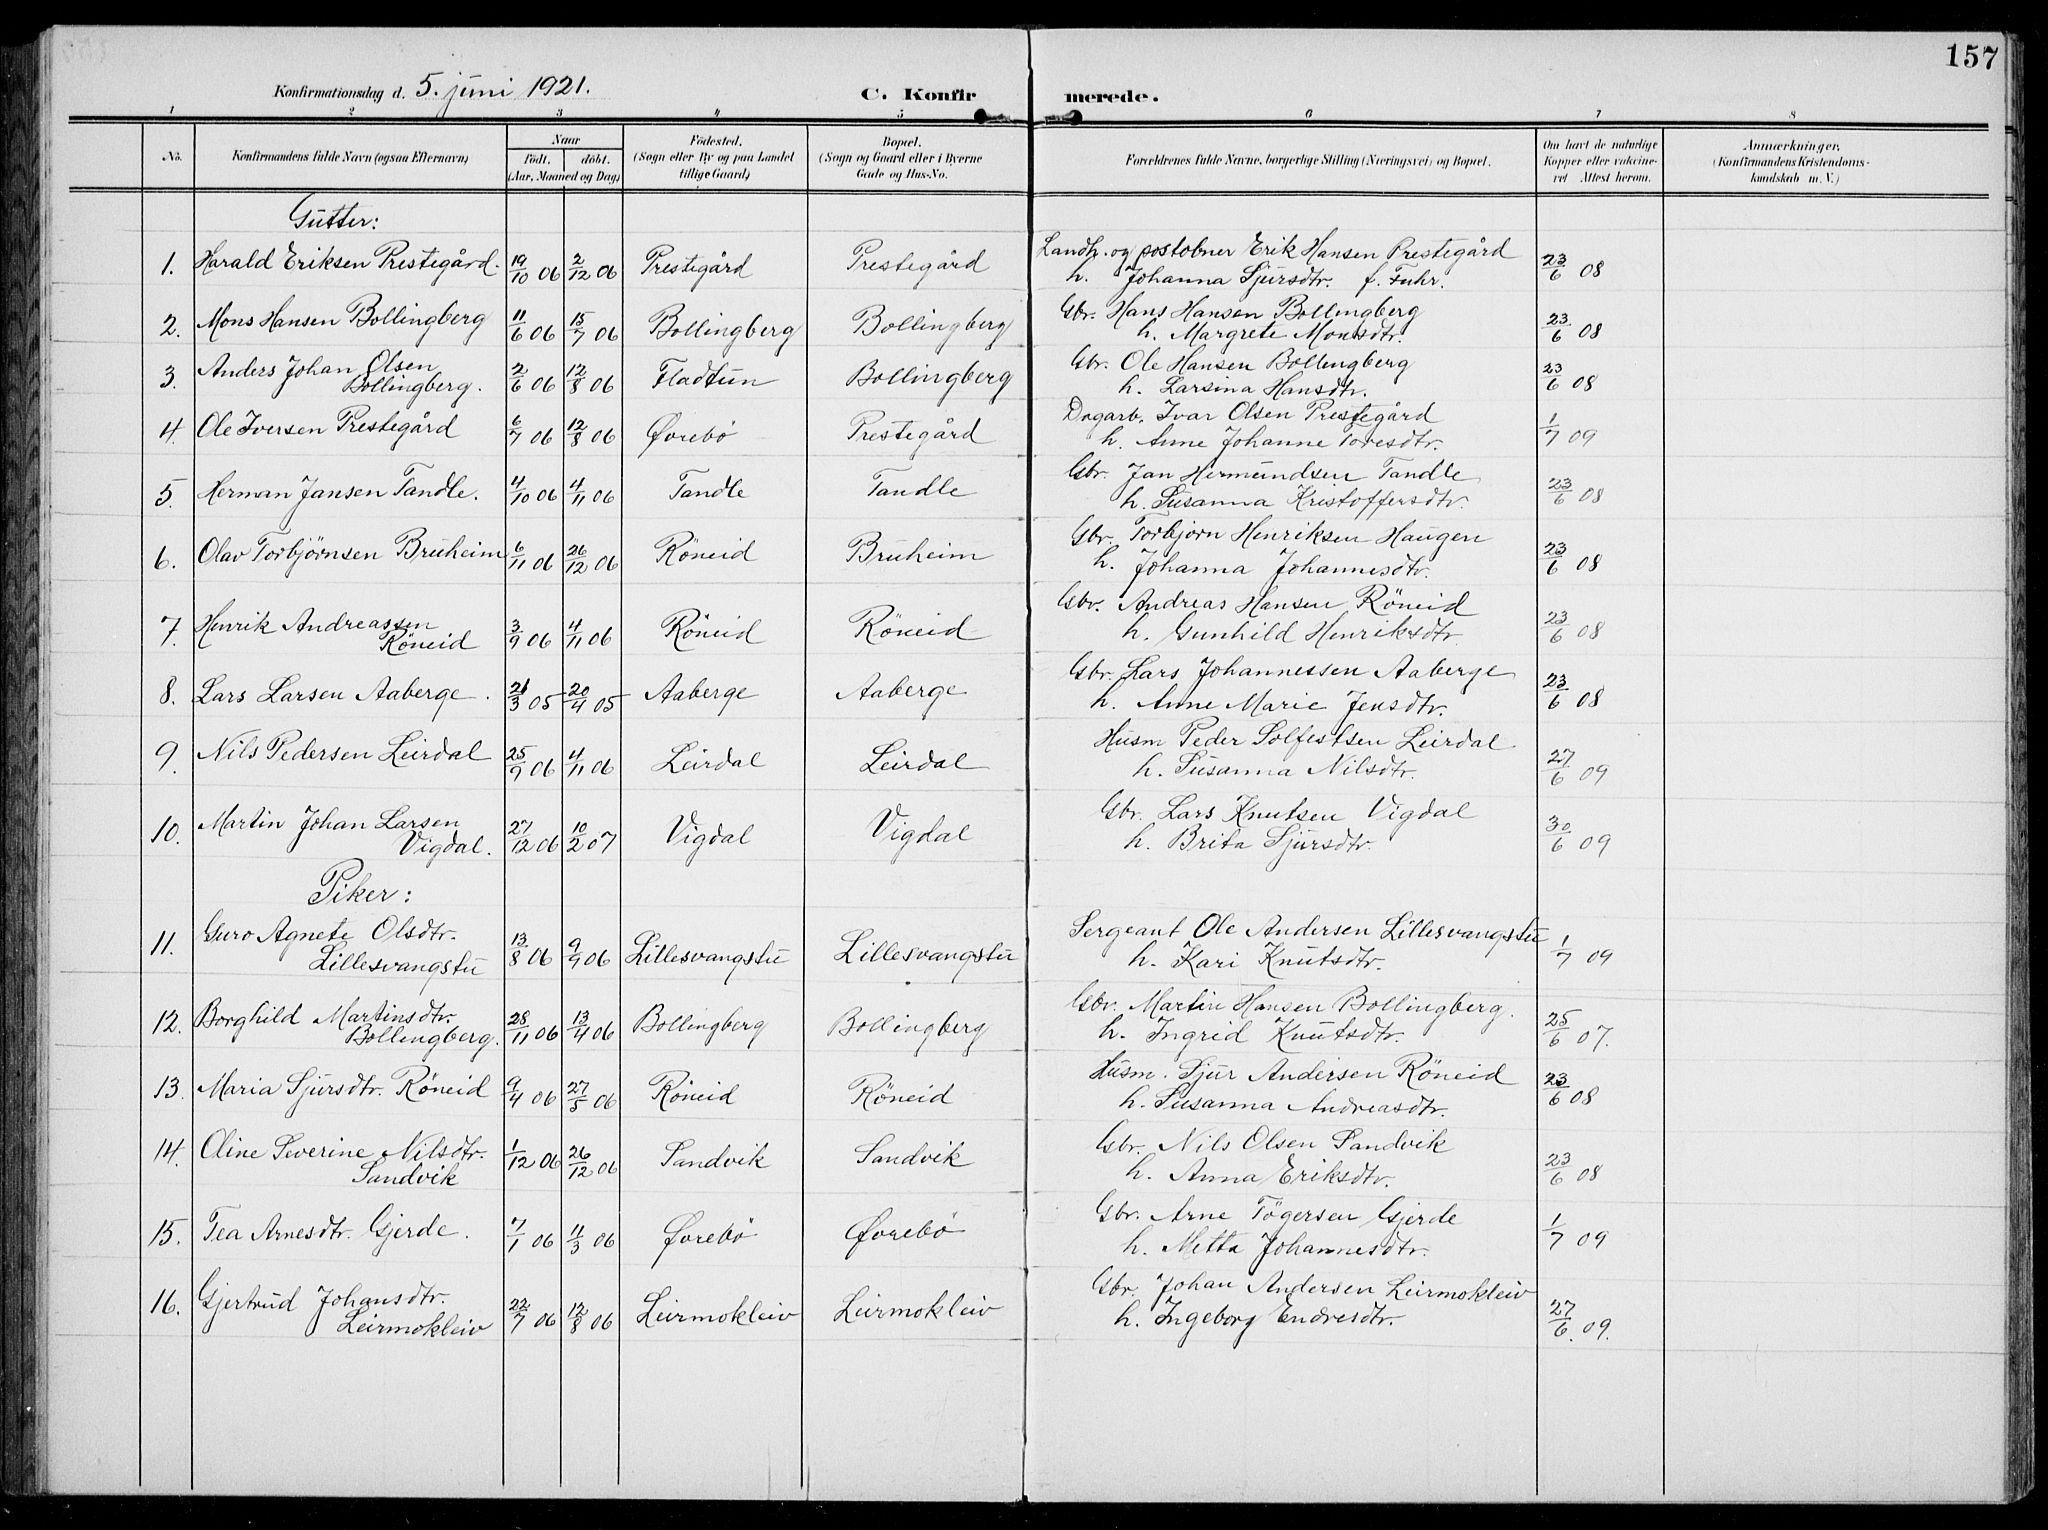 157
Konfirmationsdag d. 5. juni 1921. C. Konfirmerede.
1 2 3 4 5 6 7 8
No. Konfirmandens fulde Navn (ogsaa Efternavn) Naar födt. döbt. (Aar, Maaned og Dag) Födested. (Sogn eller By og paa Landet tillige Gaard) Bopæl. (Sogn og Gaard eller i Byerne Gade og Hus-No. Forældrenes fulde Navne, borgerlige Stilling (Næringsvei) og Bopæl. Om havt de naturlige Kopper eller vakcineret Attest herom. Anmærkninger. (Konfirmandens Kristendomskundskab m. V.)
Gutter:
1. Harald Eriksen Prestegård. 19/10 06 2/12 06 Prestegård Prestegård Landh. og postobner Erik Hansen Prestegård 23/6 08
h. Johanna Sjursdtr. f. Fuhr.
2. Mons Hansen Bollingberg 11/6 06 15/7 06 Bollingberg Bollingberg Gbr. Hans Hansen Bollingberg 23/6 08
h. Margrete Monsdtr.
3. Anders Johan Olsen 2/6 06 12/8 06 Fladtun Bollingberg Gbr. Ole Hansen Bollingberg 23/6 08
Bollingberg. h. Larsina Hansdtr.
4. Ole Iversen Prestegård 6/7 06 12/8 06 Øvrebø Prestegård Dagarb. Ivar Olsen Prestegård 1/7 09
h. Anne Johanne Toresdtr.
5. Herman Jansen Tandle. 4/10 06 4/11 06 Tandle Tandle Gbr. Jan Hermundsen Tandle 23/6 08
h. Susanna Kristoffersdtr.
6. Olav Torbjørnsen Bruheim 6/11 06 26/12 06 Röneid Bruheim Gbr. Torbjørn Henriksen Haugen 23/6 08
h. Johanna Johannesdtr.
7. Henrik Andreassen 3/9 06 4/11 06 Röneid Röneid Gbr. Andreas Hansen Röneid 23/6 08
Röneid h. Gunhild Henriksdtr.
8. Lars Larsen Aaberge. 21/3 05 20/4 05 Aaberge Aaberge Gbr. Lars Johannessen Aaberge 23/6 08
h. Anne Marie Jensdtr.
9. Nils Pedersen Leirdal 25/9 06 4/11 06 Leirdal Leirdal Husm Peder Solfestsen Leirdal 27/6 09
h. Susanna Nilsdtr.
10. Martin Johan Larsen 27/12 06 10/2 07 Vigdal Vigdal Gbr. Lars Knutsen Vigdal 30/6 09
Vigdal. h. Brita Sjursdtr.
Piker:
11. Guro Agnete Olsdtr. 13/8 06 9/9 06 Lillesvangstu Lillesvangstu Sergeant Ole Andersen Lillesvangstu 1/7 09
Lillesvangstu h. Kari Knutsdtr.
12. Borghild Martinsdtr. 28/11 06 13/4 06 Bollingberg Bollingberg Gbr. Martin Hansen Bollingberg. 25/6 07.
Bollingberg. h. Ingrid Knutsdtr.
13. Maria Sjursdtr. Röneid 9/4 06 27/5 06 Röneid Röneid Husm. Sjur Andersen Röneid 23/6 08
h. Susanna Andreasdtr.
14. Oline Severine Nilsdtr. 1/12 06 26/12 06 Sandvik Sandvik Gbr. Nils Olsen Sandvik 23/6 08
Sandvik h. Anna Eriksdtr.
15. Tea Arnesdtr. Gjerde. 7/1 06 4/3 06 Øvrebö Øvrebö Gbr. Arne Tögersen Gjerde 1/7 09
h. Metta Johannesdtr.
16. Gjertrud Johansdtr. 22/7 06 12/8 06 Leirmokleiv Leirmokleiv Gbr. Johan Andersen Leirmokleiv 27/6. 09.
Leirmokleiv h. Ingeborg Endresdtr.